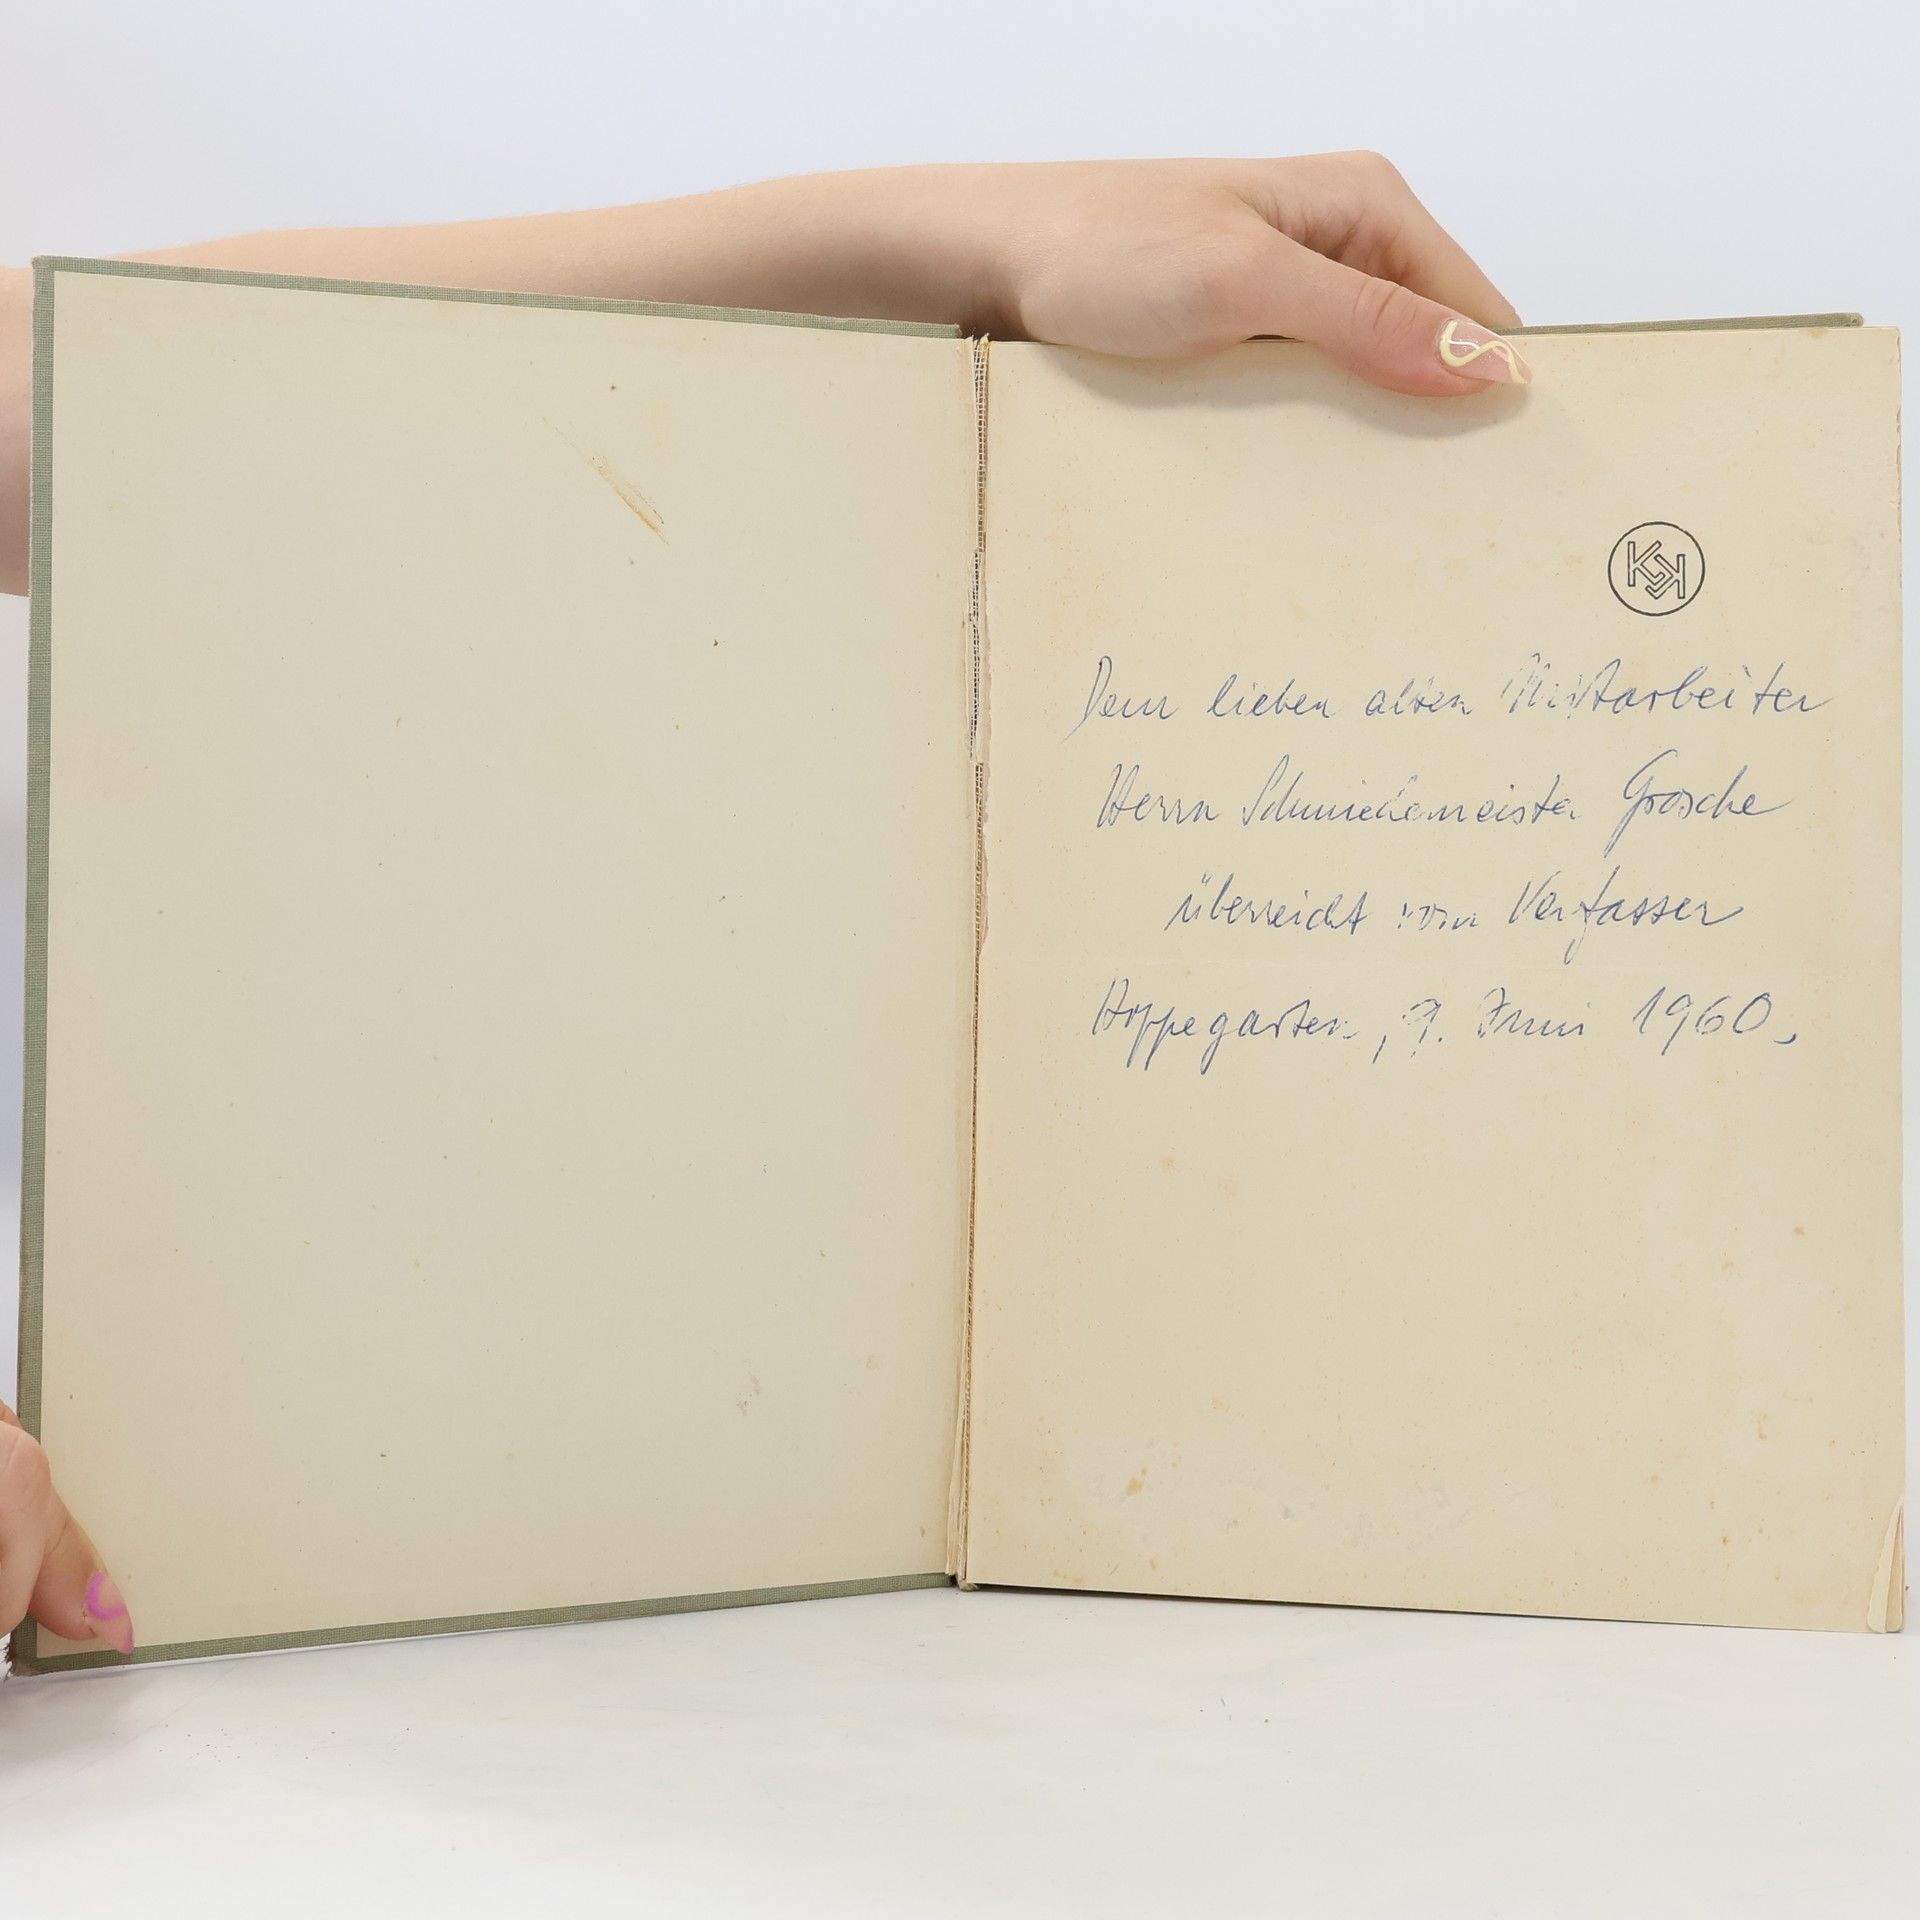 KK
Dem lieben alten Mitarbeiter
Herrn Schmiedemeister Grosche
überreicht vom Verfasser
Hoppegarten, 7. Juni 1960.